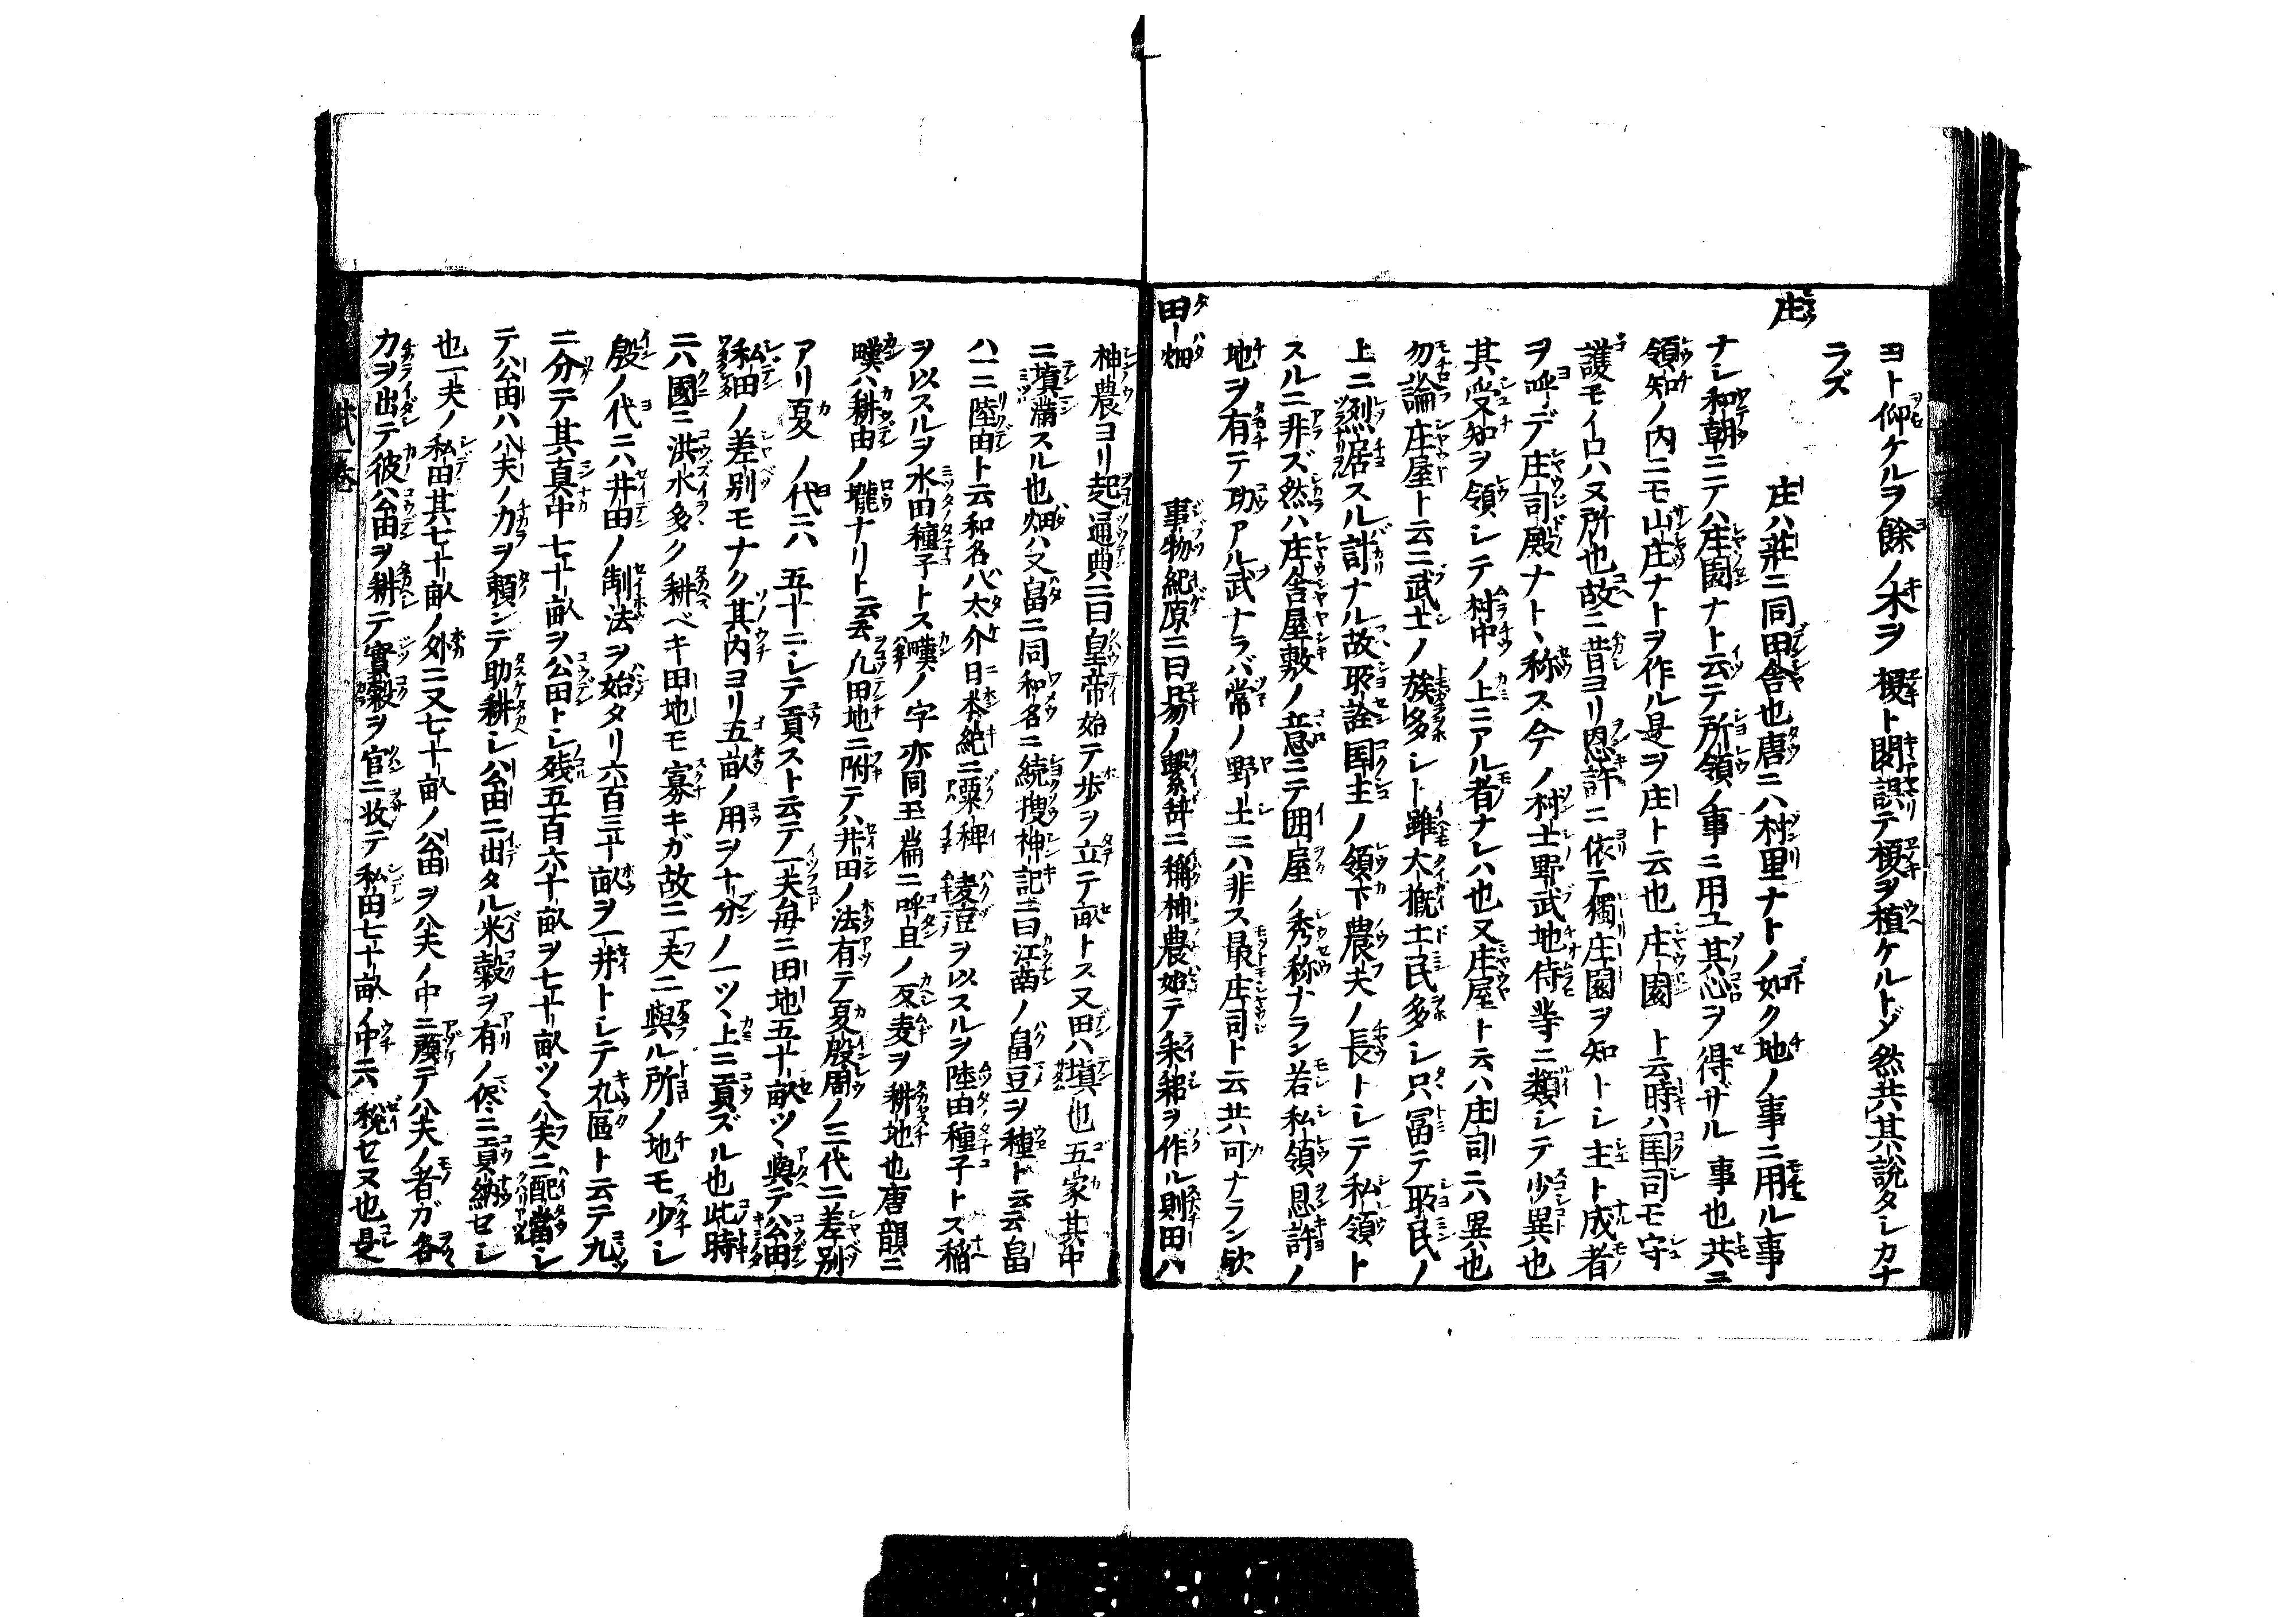 ヨト仰ケルヲ餘ノ木ヲ榎ト聞誤テ榎ヲ植ケルトゾ然共其説タシカナ
ラズ
庄　庄ハ莊ニ同田舎也唐ニハ村里ナトノ如ク地ノ事ニ用ル事
ナシ和朝ニテハ庄園ナト云テ所領ノ事ニ用ユ其心ヲ得ザル事也共ニ
領知ノ内ニモ山庄ナトヲ作ル是ヲ庄ト云也庄園ト云時ハ国司モ守
護モイロハヌ所也故ニ昔ヨリ恩許ニ依テ獨庄園ヲ知トシ主ト成者
ヲ呼デ庄司殿ナト、称ス今ノ村士野武地侍業ニ類シテ少異也
其受知ヲ領シテ村中ノ上ニアル者ナレハ也又庄屋ト云ハ庄司ニハ異也
勿論庄屋ト云ニ武士ノ族多シト雖大概土民多シ只冨テ民ノ
上ニ烈居スル計ナル故所詮国主ノ領下農夫ノ長トシテ私領ト
スルニ非ズ然ハ庄舎屋敷ノ意ニテ囲屋ノ秀称ナラン若私領恩許ノ
地ヲ有テ功アル武ナラバ常ノ野士ニハ非ス最庄司ト云共可ナラン欤
田畑　事物紀原ニ曰易ノ繋辞ニ稱神農始テ耒耜ヲ作ル則田ハ
神農ヨリ起通典ニ曰皇帝始テ歩ヲ立テ畝トス又田ハ填也五家其中
ニ填滿スル也畑ハ又畠ニ同和名ニ続捜神記ニ曰江南ノ畠豆ヲ種ト云云畠
ハ二陸田ト云和名ハ太介日本紀ニ粟稗麦豆ヲ以スルヲ陸田種子トス稲
ヲ以スルヲ水田種子トス暵ノ字亦同玉篇ニ呼旦ノ反麦ヲ耕地也唐韻ニ
暵ハ耕田ノ壠ナリト云云凡田地ニ附テハ井田ノ法有テ夏殷周ノ三代ニ差別
アリ夏ノ代ニハ五十ニシテ貢スト云テ一夫毎ニ田地五十畝ツヽ與テ公田
私田ノ差別モナク其内ヨリ五畝ノ用ヲ十分ノ一ツヽ上ニ貢ズル也此時
ニハ國ニ洪水多ク耕ベキ田地モ寡キガ故ニ一夫ニ與ル所ノ地モ少シ
殷ノ代ニハ井田ノ制法ヲ始タリ六百三十畝ヲ一井トシテ九區ト云テ九
ニ分テ其真中七十畝ヲ公田トシ残五百六十畝ヲ七十畝ツヽ八夫ニ配當シ
テ公田ハ八夫ノ力ヲ頼ンデ助耕シ公田ニ出タル米穀ヲ有ノ侭ニ貢納セシ
也一夫ノ私田其七十畝ノ外ニ又七十畝ノ公田ヲ八夫ノ中ニ預テ八夫ノ者ガ各
力ヲ出テ彼公田ヲ耕テ實穀ヲ官ニ收テ私田七十畝ノ中ニハ税セヌ也是
弐巻